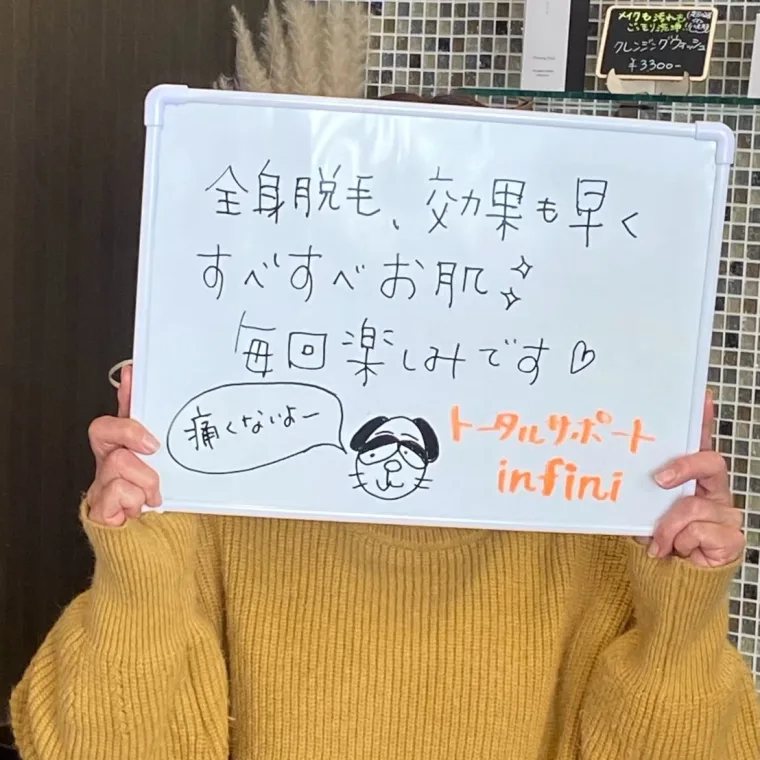 メイクも汚れも
ごっそり洗浄!
クレンジングウォッシュ
¥3300-
全身脱毛、効果も早く
すべすべお肌
毎回楽しみです♡
痛くないよー
トータルサポート
infini